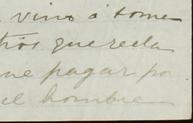 vino ó tome
tros que recla
me pagar po
el hombre